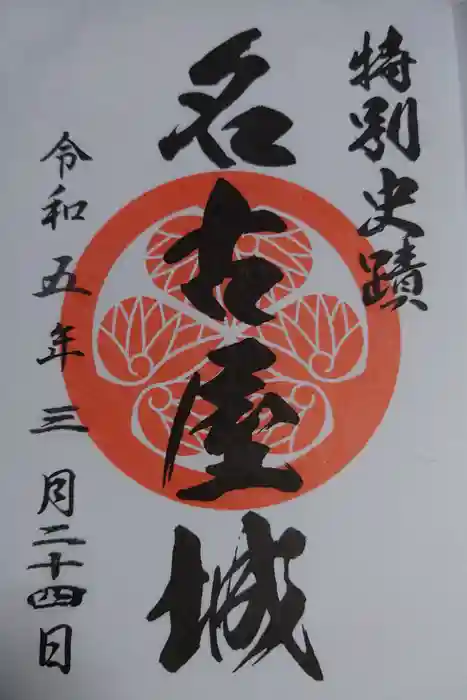 特別史蹟
名古屋城
令和五年三月二十四日